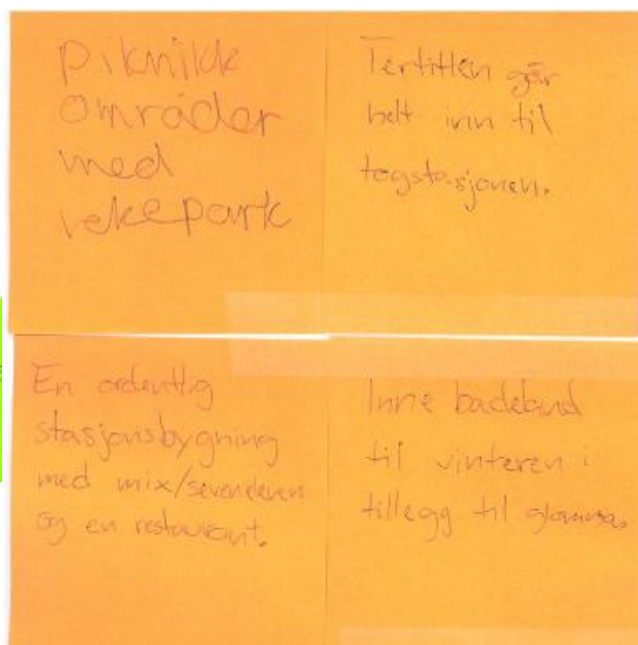 Piknikk
områder
med
lekepark
Tertitten går
helt inn til
togstasjonen.
En ordentlig
stasjonsbygning
med mix/seveneleven
og en restaurant.
Inne badeland
til vinteren i
tillegg til glomma.